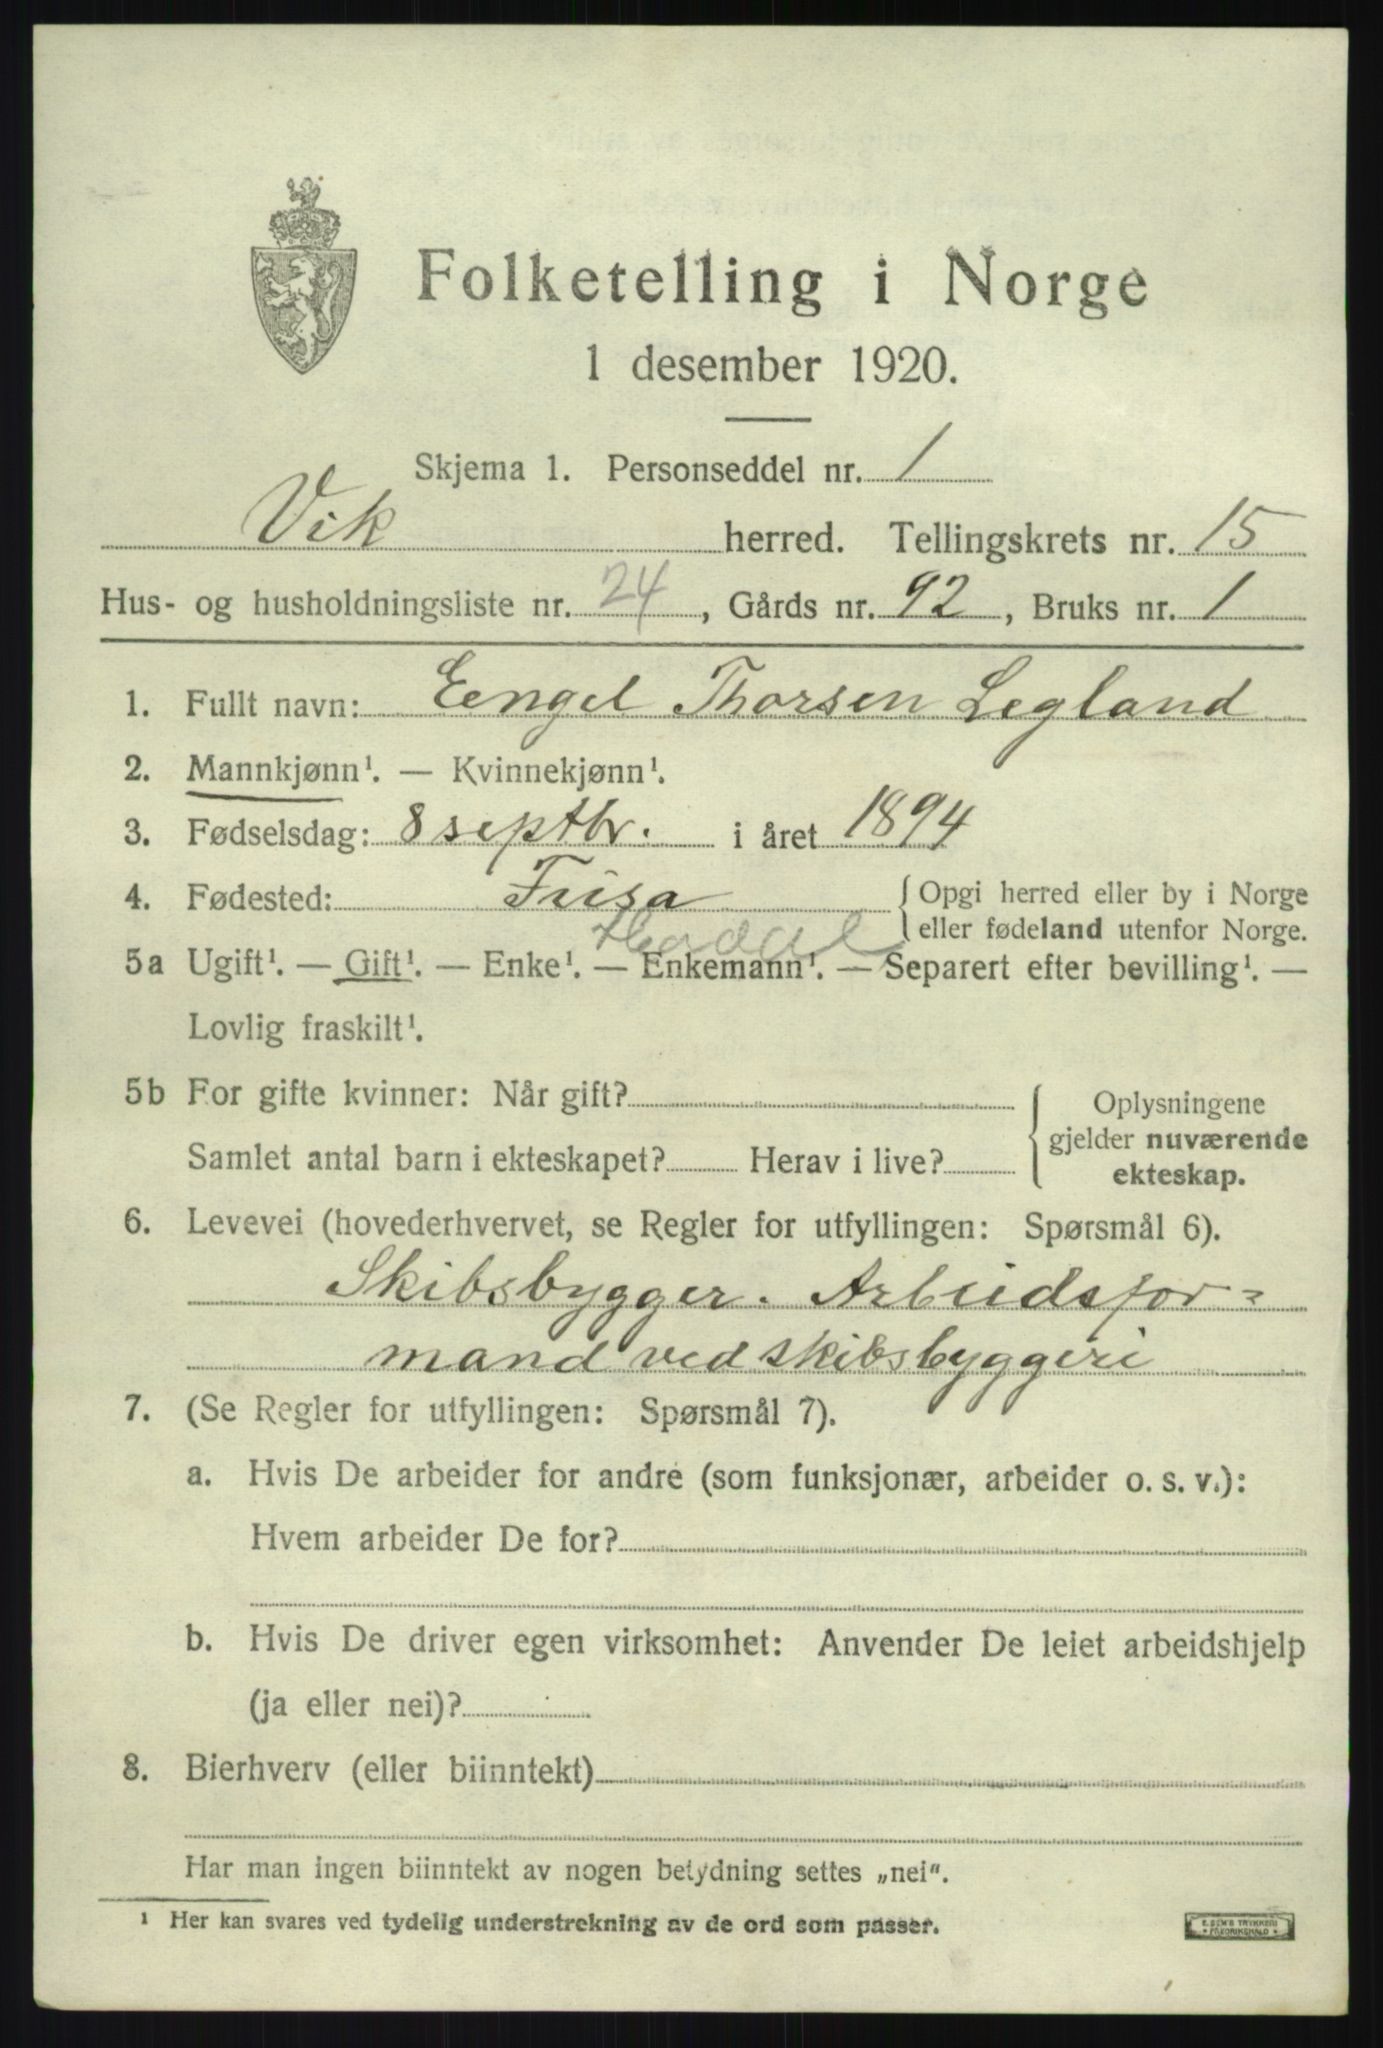 Folketelling i Norge
1 desember 1920.
Skjema 1. Personseddel nr. 1
Vik herred. Tellingskrets nr. 15
Hus- og husholdningsliste nr. 24, Gårds nr. 92, Bruks nr. 1
1. Fullt navn: Eengel Thorsen Legland
2. Mannkjønn¹. — Kvinnekjønn¹.
3. Fødselsdag: 8 septbr. i året 1894
4. Fødested: Fusa { Opgi herred eller by i Norge
eller fødeland utenfor Norge.
5a Ugift¹. — Gift¹. — Enke¹. — Enkemann¹. — Separert efter bevilling¹. —
Lovlig fraskilt¹.
5b For gifte kvinner: Når gift? { Oplysningene
gjelder nuværende
Samlet antal barn i ekteskapet? Herav i live?
ekteskap.
6. Levevei (hovederhvervet, se Regler for utfyllingen: Spørsmål 6).
Skibsbygger. Arbeidsfor=
mand ved skibsbyggeri
7. (Se Regler for utfyllingen: Spørsmål 7).
a. Hvis De arbeider for andre (som funksjonær, arbeider o. s. v.):
Hvem arbeider De for?
b. Hvis De driver egen virksomhet: Anvender De leiet arbeidshjelp
(ja eller nei)?
8. Bierhverv (eller biinntekt)
Har man ingen biinntekt av nogen betydning settes „nei“.
¹ Her kan svares ved tydelig understrekning av de ord som passer.